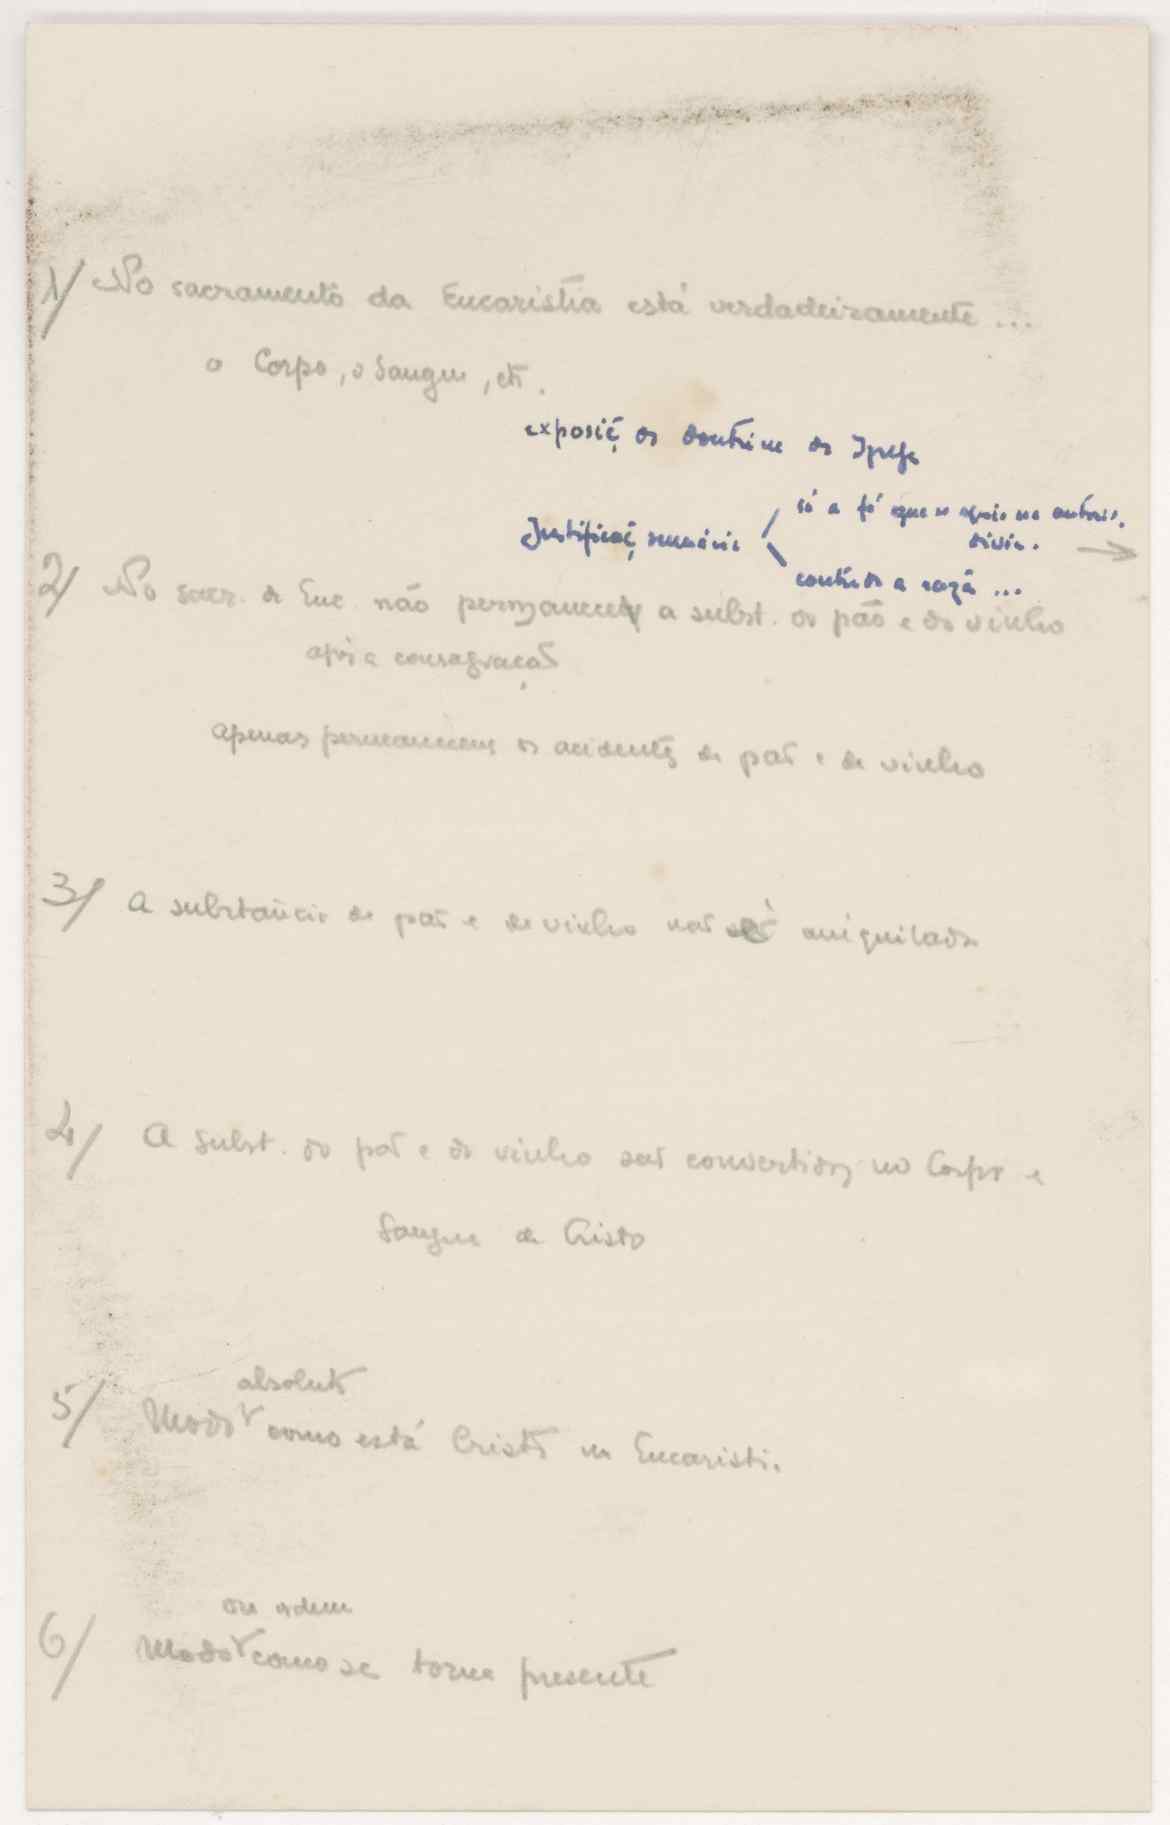 1/ No sacramento da Eucaristia está verdadeiramente ...
o Corpo, o Sangue, etc.
exposiç da doutrina da Igreja
Justificaç sumária
só a fé que se apoia na autorid.
divin. →
contra a razã ...
2/ No sacr. da Euc. não permanece a subst. do pão e do vinho
após a consagração
apenas permanecem os acidentes de pão e de vinho
3/ A substância de pão e de vinho não é aniquilada
4/ A subst. do pão e do vinho são convertidos no Corpo e
Sangue de Cristo
absoluto
5/ Modo como está Cristo na Eucaristi.
ou ordem
6/ Modo como se torna presente